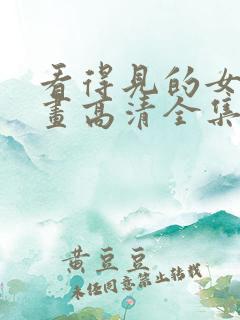 看得见的女
畫高清全集
黄豆豆
未经同意禁止转载